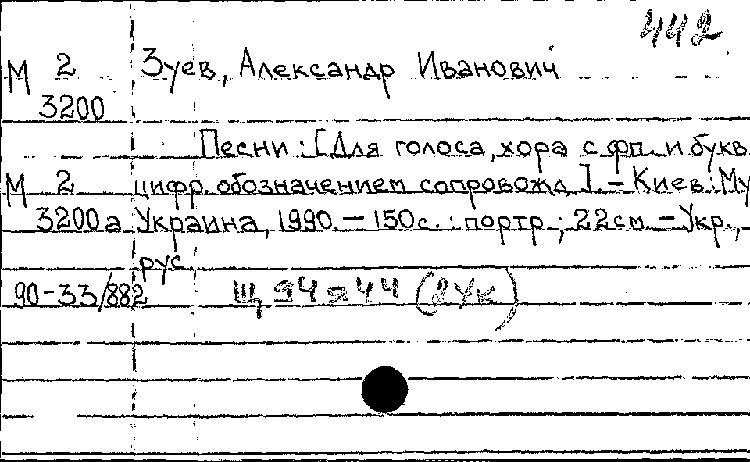 442
М 2 Зуев, Александр Иванович
3200
Песни : [Для голоса, хора с фп. и букв.
М 2 цифр. обозначением сопровожд.]. – Киев : Му
3200а Украина, 1990. – 150 с. : портр. ; 22 см. – Укр.,
рус.
90-33/882 Щ 94 я 44 (2Ук)